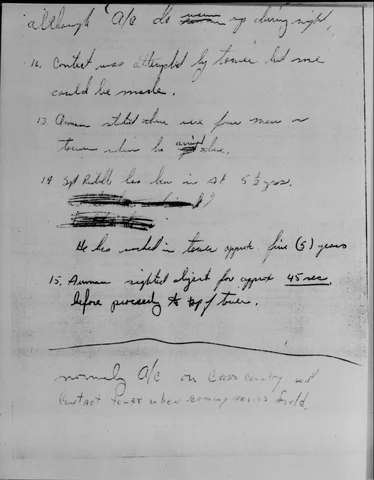 although A/C do warm up during night.
12. Contact was attempted by tower but none
could be made.
13. Airman stated there were four men in
tower when he arrived there.
14 Sgt has been in AF 5½ yrs.
He has worked in tower approx five (5) years
15. Airman sighted object for approx 45 sec.
before proceeding to top of tower.
normaly A/C on Cross country will
Contact tower when coming across field.